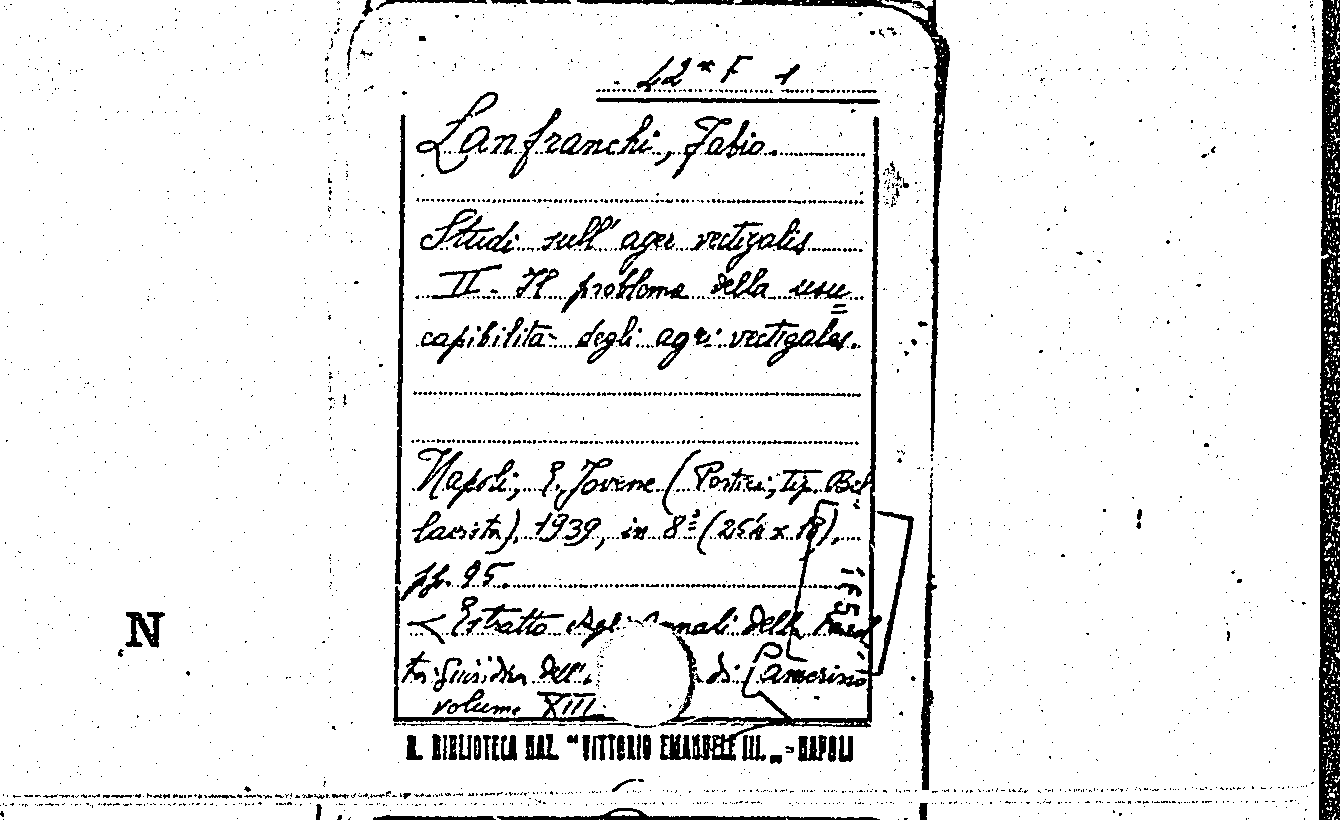 42* F 1
Lanfranchi, Fabio.
Studi sull' ager vectigalis
II - Il problema della usu=
capibilità degli agri vectigales.
Napoli, E. Jovene (Portici, tip. Bel-
lavista), 1939, in 8º (25,4 x 18),
pp. 95.
Estratto dagli Annali della Facol
tà Giuridica dell' di Camerino
volume XIII
N
R. BIBLIOTECA NAZ. "VITTORIO EMANUELE III." - NAPOLI